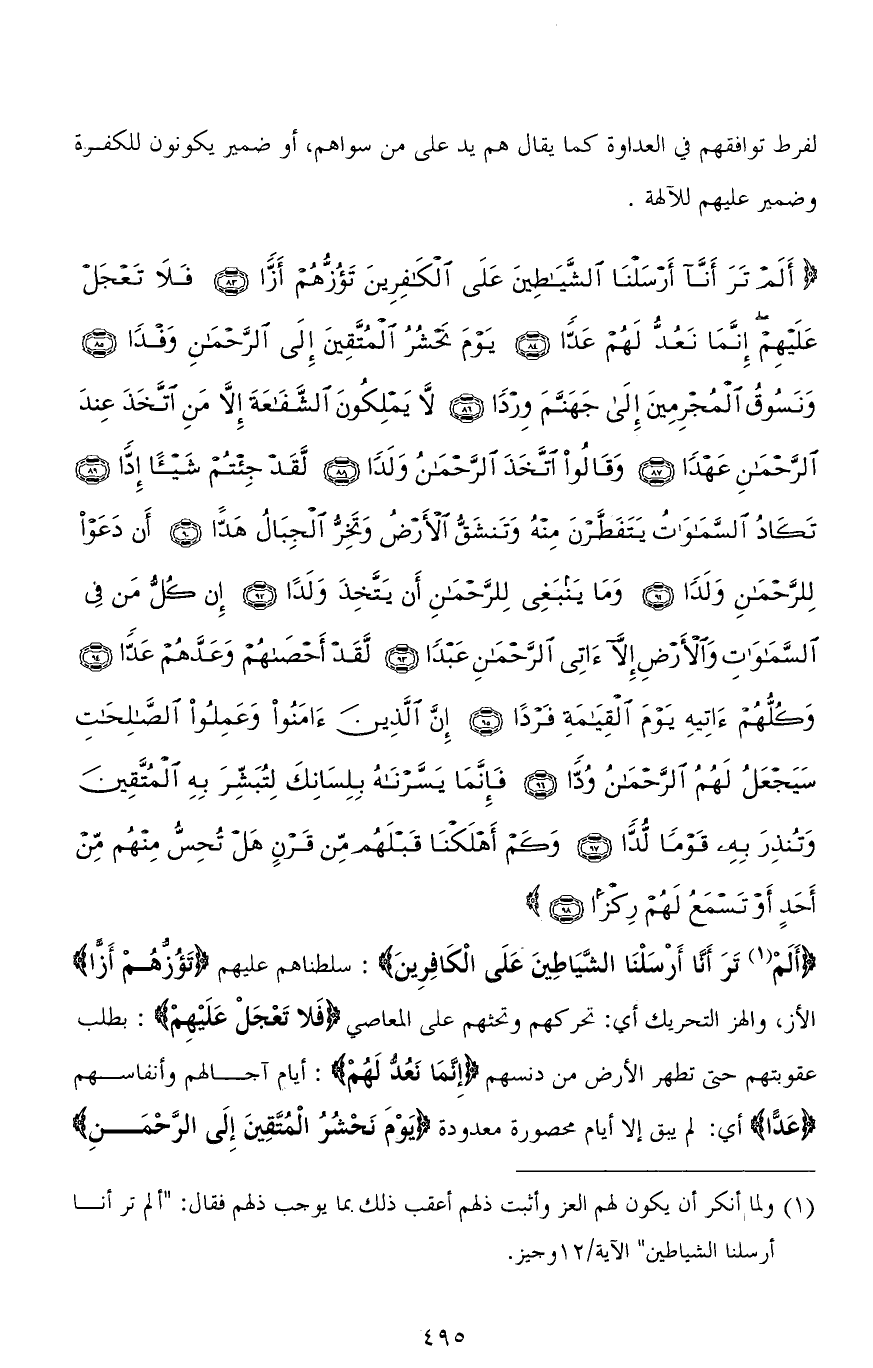 لفرط توافقهم في العداوة كما يقال هم يد على من سواهم، أو ضمير يكونون للكفرة
وضمير عليهم للآلهة .
﴿ أَلَمْ تَرَ أَنَّآ أَرْسَلْنَا ٱلشَّيَٰطِينَ عَلَى ٱلْكَٰفِرِينَ تَؤُزُّهُمْ أَزًّا ۝٨٣ فَلَا تَعْجَلْ
عَلَيْهِمْ ۖ إِنَّمَا نَعُدُّ لَهُمْ عَدًّا ۝٨٤ يَوْمَ نَحْشُرُ ٱلْمُتَّقِينَ إِلَى ٱلرَّحْمَٰنِ وَفْدًا ۝٨٥
وَنَسُوقُ ٱلْمُجْرِمِينَ إِلَىٰ جَهَنَّمَ وِرْدًا ۝٨٦ لَّا يَمْلِكُونَ ٱلشَّفَٰعَةَ إِلَّا مَنِ ٱتَّخَذَ عِندَ
ٱلرَّحْمَٰنِ عَهْدًا ۝٨٧ وَقَالُوا۟ ٱتَّخَذَ ٱلرَّحْمَٰنُ وَلَدًا ۝٨٨ لَّقَدْ جِئْتُمْ شَيْـًٔا إِدًّا ۝٨٩
تَكَادُ ٱلسَّمَٰوَٰتُ يَتَفَطَّرْنَ مِنْهُ وَتَنشَقُّ ٱلْأَرْضُ وَتَخِرُّ ٱلْجِبَالُ هَدًّا ۝٩٠ أَن دَعَوْا۟
لِلرَّحْمَٰنِ وَلَدًا ۝٩١ وَمَا يَنۢبَغِى لِلرَّحْمَٰنِ أَن يَتَّخِذَ وَلَدًا ۝٩٢ إِن كُلُّ مَن فِى
ٱلسَّمَٰوَٰتِ وَٱلْأَرْضِ إِلَّآ ءَاتِى ٱلرَّحْمَٰنِ عَبْدًا ۝٩٣ لَّقَدْ أَحْصَىٰهُمْ وَعَدَّهُمْ عَدًّا ۝٩٤
وَكُلُّهُمْ ءَاتِيهِ يَوْمَ ٱلْقِيَٰمَةِ فَرْدًا ۝٩٥ إِنَّ ٱلَّذِينَ ءَامَنُوا۟ وَعَمِلُوا۟ ٱلصَّٰلِحَٰتِ
سَيَجْعَلُ لَهُمُ ٱلرَّحْمَٰنُ وُدًّا ۝٩٦ فَإِنَّمَا يَسَّرْنَٰهُ بِلِسَانِكَ لِتُبَشِّرَ بِهِ ٱلْمُتَّقِينَ
وَتُنذِرَ بِهِۦ قَوْمًا لُّدًّا ۝٩٧ وَكَمْ أَهْلَكْنَا قَبْلَهُم مِّن قَرْنٍ هَلْ تُحِسُّ مِنْهُم مِّنْ
أَحَدٍ أَوْ تَسْمَعُ لَهُمْ رِكْزًۢا ۝٩٨ ﴾
﴿أَلَمْ(١) تَرَ أَنَّا أَرْسَلْنَا الشَّيَاطِينَ عَلَى الْكَافِرِينَ﴾ : سلطناهم عليهم ﴿تَؤُزُّهُمْ أَزًّا﴾
الأز، والهز التحريك أي: تحركهم وتحثهم على المعاصي ﴿فَلا تَعْجَلْ عَلَيْهِمْ﴾ : بطلب
عقوبتهم حتى تطهر الأرض من دنسهم ﴿إِنَّمَا نَعُدُّ لَهُمْ﴾ : أيام آجالهم وأنفاسهم
﴿عَدًّا﴾ أي: لم يبق إلا أيام محصورة معدودة ﴿يَوْمَ نَحْشُرُ الْمُتَّقِينَ إِلَى الرَّحْمَنِ﴾
(١) ولما أنكر أن يكون لهم العز وأثبت ذلهم أعقب ذلك بما يوجب ذلهم فقال: "ألم تر أنا
أرسلنا الشياطين" الآية/١٢وجيز.
٤٩٥